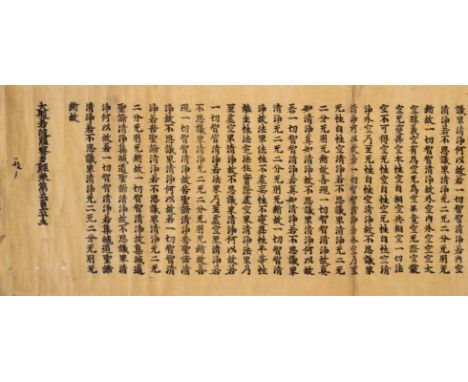 議界清淨何以故若一切智智清淨若內空
清淨若不思議界清淨无二无二分无別无
斷故一切智智清淨故外空內外空空空大
空勝義空有為空无為空畢竟空无際空散
空无變異空本性空自相空共相空一切法
空不可得空无性空自性空无性自性空清
淨外空乃至无性自性空清淨故不思議界
清淨何以故若一切智智清淨若外空乃至
无性自性空清淨若不思議界清淨无二无
二分无別无斷故善現一切智智清淨故真
如清淨真如清淨故不思議界清淨何以故
若一切智智清淨若真如清淨若不思議界
清淨无二无二分无別无斷故一切智智清
淨故法界法性不虛妄性不變異性平等性
離生性法定法住實際虛空界清淨法界乃
至虛空界清淨故不思議界清淨何以故若
一切智智清淨若法界乃至虛空界清淨若
不思議界清淨无二无二分无別无斷故善
現一切智智清淨故苦聖諦清淨苦聖諦清
淨故不思議界清淨何以故若一切智智清
淨若苦聖諦清淨若不思議界清淨无二无
二分无別无斷故一切智智清淨故集滅道
聖諦清淨集滅道聖諦清淨故不思議界清
淨何以故若一切智智清淨若集滅道聖諦
清淨若不思議界清淨无二无二分无別无
斷故
大般若波羅蜜多經卷第二百五十五